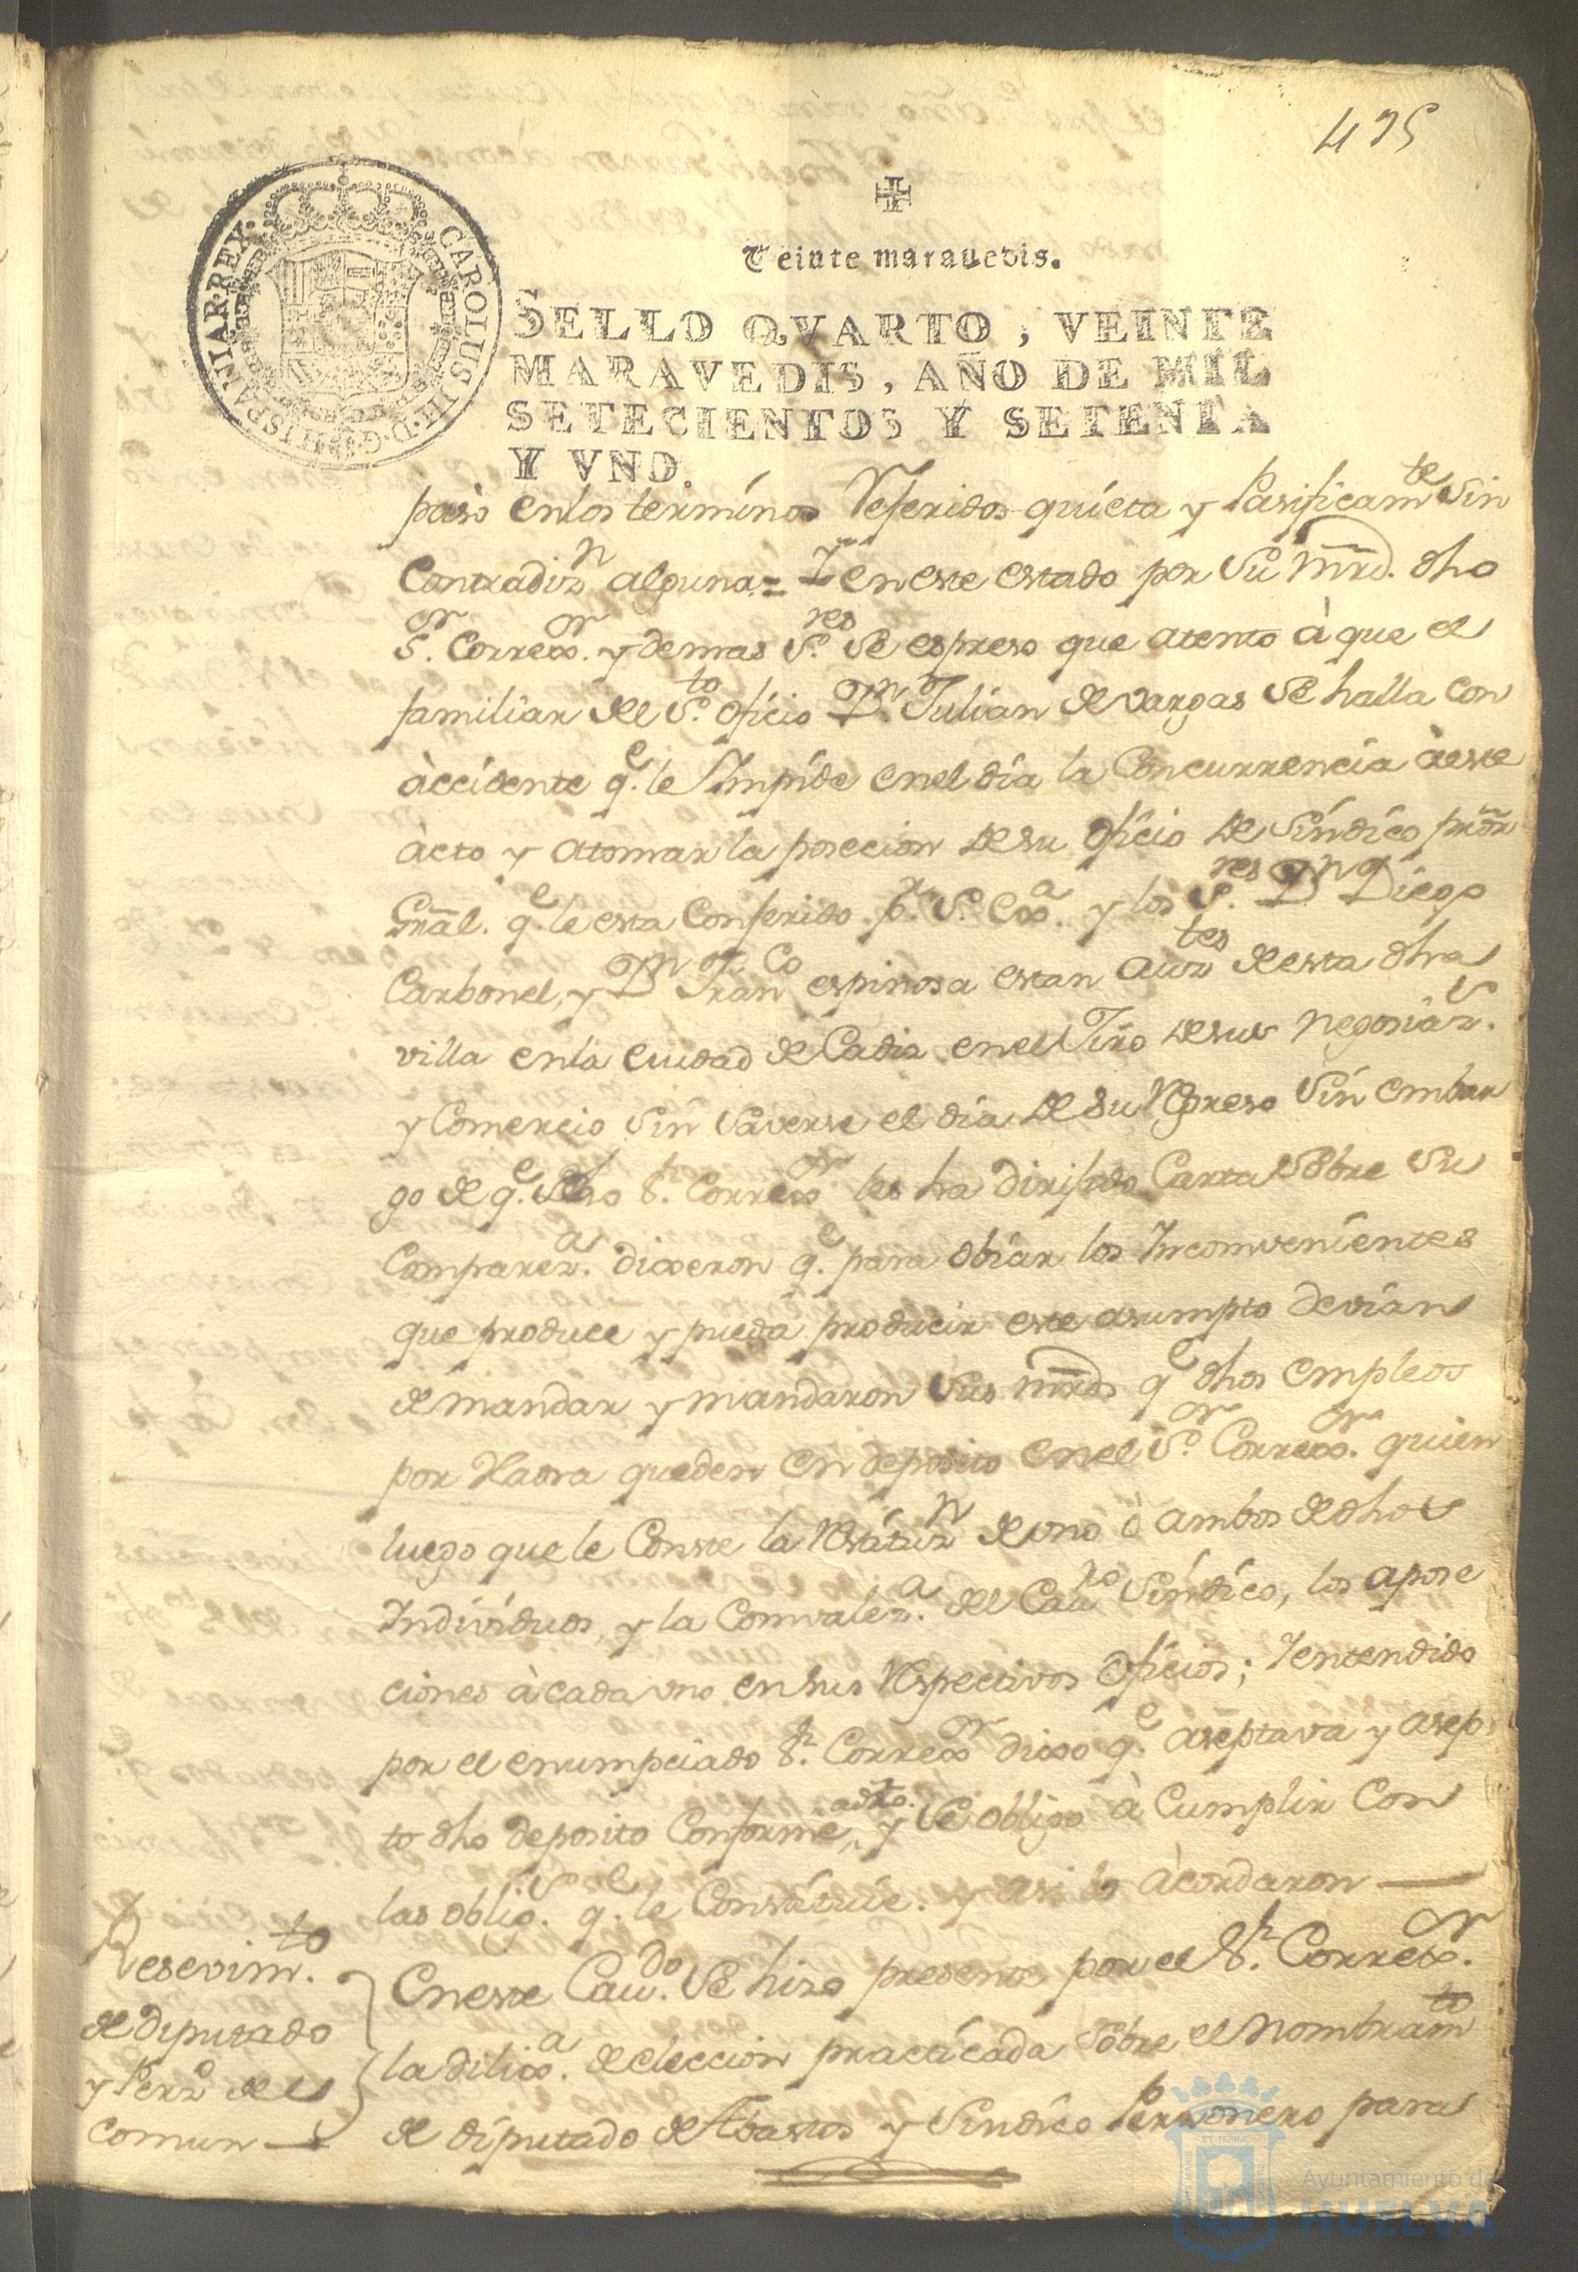 475
Veinte maravedis.
CAROLUS III. D. G. HISPANIAR. REX.
SELLO QVARTO, VEINTE
MARAVEDIS, AÑO DE MIL
SETECIENTOS Y SETENTA
Y VNO.
pasò enlos terminos Referidos quieta y Pasificamte sin
Contradizn alguna = Y eneste estado por Su mrd. dho
Sor. Correxor. y demas Sres. Se espreso que atento à que el
familiar del Sto. oficio Dn. Julian de Vargas Se halla con
àccidente qe. le Impide enel dia la Concurrencia àeste
àcto y atomar la posecion de su oficio de Sindico prõr
Grãl. qe. le esta Conferido pr. S. Exa. y los Sres. Dn. Diego
Carbonel, y Dn Franco espinosa estan aurtes de esta dha
villa enla Ciudad de Cadiz enel Jiro de sus negosiazs.
y Comercio Sin Saverse el dia de su Regreso Sin embar
go de qe. dho Sr. Correxor les ha dirijido Carta Sobre Su
Compareza. dixeron qe. para obiar los Incomvenientes
que produce y pueda producir este asumpto devian
de mandar y mandaron Sus mrds qe dhos empleos
por Haora queden en deposito enel Sor. Correxor. quien
luego que le Conste la Restituzn de uno ò ambos de dhos
Individuos, y la Comvaleza. del Cauo Sindico, los apose
ciones à cada uno en sus Respectivos Oficios; Y entendido
por el enumpciado Sr. Correxor dixo qe. aseptava y asep
to dho deposito Conforme adto. y Se obligo à Cumplir Con
las obligs. qe. le Constituie. y asi lo àcordaron —
Resevimto.
de diputado
y Perzo del
comun —
Eneste Caudo. Se hizo presente por el Sr. Correxor.
la dilixa. de eleccion practicada Sobre el nombramto
de diputado de Abastos y Sindico Personero para
Ayuntamiento de
HUELVA